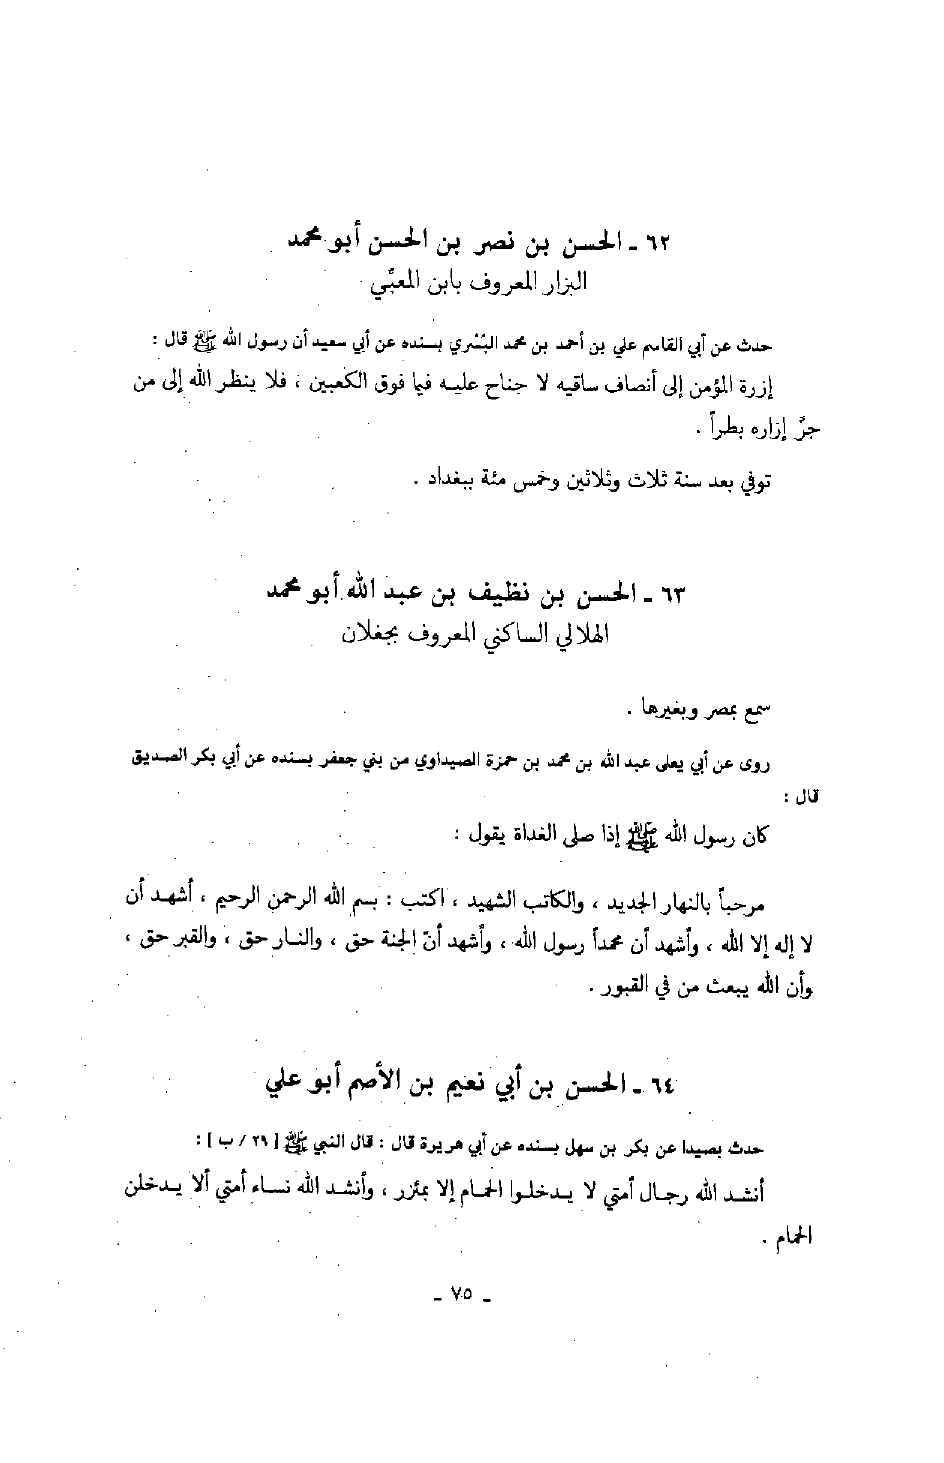 ٦٢ ـ الحسن بن نصر بن الحسن أبو محمد
البزار المعروف بابن المعبَّي
حدث عن أبي القاسم علي بن أحمد بن محمد البُسْري بسنده عن أبي سعيد أن رسول الله ﷺ قال :
إزرة المؤمن إلى أنصاف ساقيه لا جناح عليه فيما فوق الكعبين ، فلا ينظر الله إلى من
جرَّ إزاره بطراً .
توفي بعد سنة ثلاث وثلاثين وخمس مئة ببغداد .
٦٣ ـ الحسن بن نظيف بن عبد الله أبو محمد
الهلالي الساكني المعروف بجغلان
سمع بمصر وبغيرها .
روى عن أبي يعلى عبد الله بن محمد بن حمزة الصيداوي من بني جعفر بسنده عن أبي بكر الصديق
قال :
كان رسول الله ﷺ إذا صلى الغداة يقول :
مرحباً بالنهار الجديد ، والكاتب الشهيد ، اكتب : بسم الله الرحمن الرحيم ، أشهد أن
لا إله إلا الله ، وأشهد أن محمداً رسول الله ، وأشهد أنّ الجنة حق ، والنار حق ، والقبر حق ،
وأن الله يبعث من في القبور .
٦٤ ـ الحسن بن أبي نعيم بن الأصم أبو علي
حدث بصيدا عن بكر بن سهل بسنده عن أبي هريرة قال : قال النبي ﷺ [ ٢٩ / ب ] :
أنشد الله رجال أمتي لا يدخلوا الحمام إلا بمئزر ، وأنشد الله نساء أمتي ألا يدخلن
الحمام .
ـ ٧٥ ـ